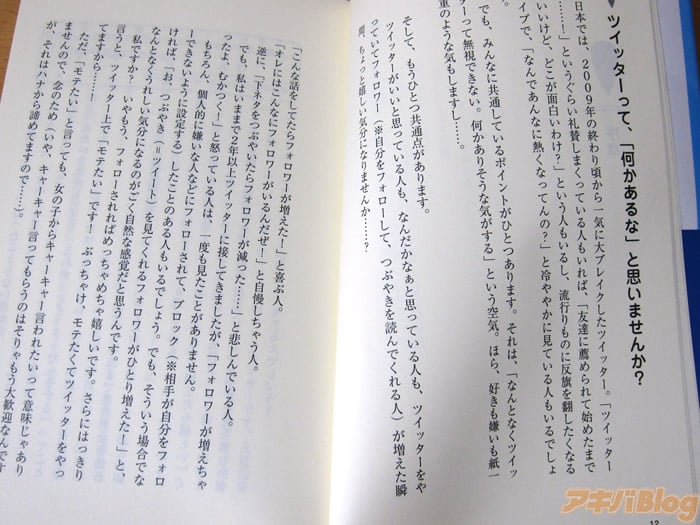 ツイッターって、「何かあるな」と思いませんか？
日本では、2009年の終わり頃から一気に大ブレイクしたツイッター。「ツイッター
……！」というぐらい礼賛しまくっている人もいれば、「友達に薦められて始めたまで
いいけど、どこが面白いわけ？」という人もいるし、流行りものに反旗を翻したくなる
イプで、「なんであんなに熱くなってんの？」と冷ややかに見ている人もいるでしょ
でも、みんなに共通しているポイントがひとつあります。それは、「なんとなくツイッ
ーって無視できない。何かありそうな気がする」という空気。ほら、好きも嫌いも紙一
重のような気もしますし……。
そして、もうひとつ共通点があります。
ツイッターがいいと思っている人も、なんだかなぁと思っている人も、ツイッターをや
っていてフォロワー（※自分をフォローして、つぶやきを読んでくれる人）が増えた瞬
間、ちょっと嬉しい気分になりませんか……？
12
「こんな話をしてたらフォロワーが増えた！」と喜ぶ人。
「オレにはこんなにフォロワーがいるんだぜ！」と自慢しちゃう人。
逆に、「下ネタをつぶやいたらフォロワーが減った……」と悲しんでいる人。
でも、私はいままで2年以上ツイッターに接してきましたが、「フォロワーが増えちゃ
ったよ、むかつく！」と怒っている人は、一度も見たことがありません。
もちろん、個人的に嫌いな人などにフォローされて、ブロック（※相手が自分をフォロ
ーできないように設定する）したことのある人もいるでしょう。でも、そういう場合でな
ければ、「お、つぶやき（＝ツイート）を見てくれるフォロワーがひとり増えた！」と、
なんとなくうれしい気分になるのがごく自然な感覚だと思うんです。
私ですか？ いやもう、フォローされればめっちゃめちゃ嬉しいです。さらにはっきり
言うと、ツイッター上で「モテたい」です！ ぶっちゃけ、モテたくてツイッターをやっ
てますから……！
ただ、「モテたい」と言っても、女の子からキャーキャー言われたいって意味じゃあり
ませんので、念のため（いや、キャーキャー言ってもらうのはそりゃもう大歓迎なんです
が、それはハナから諦めてますので……）。
アキバBlog